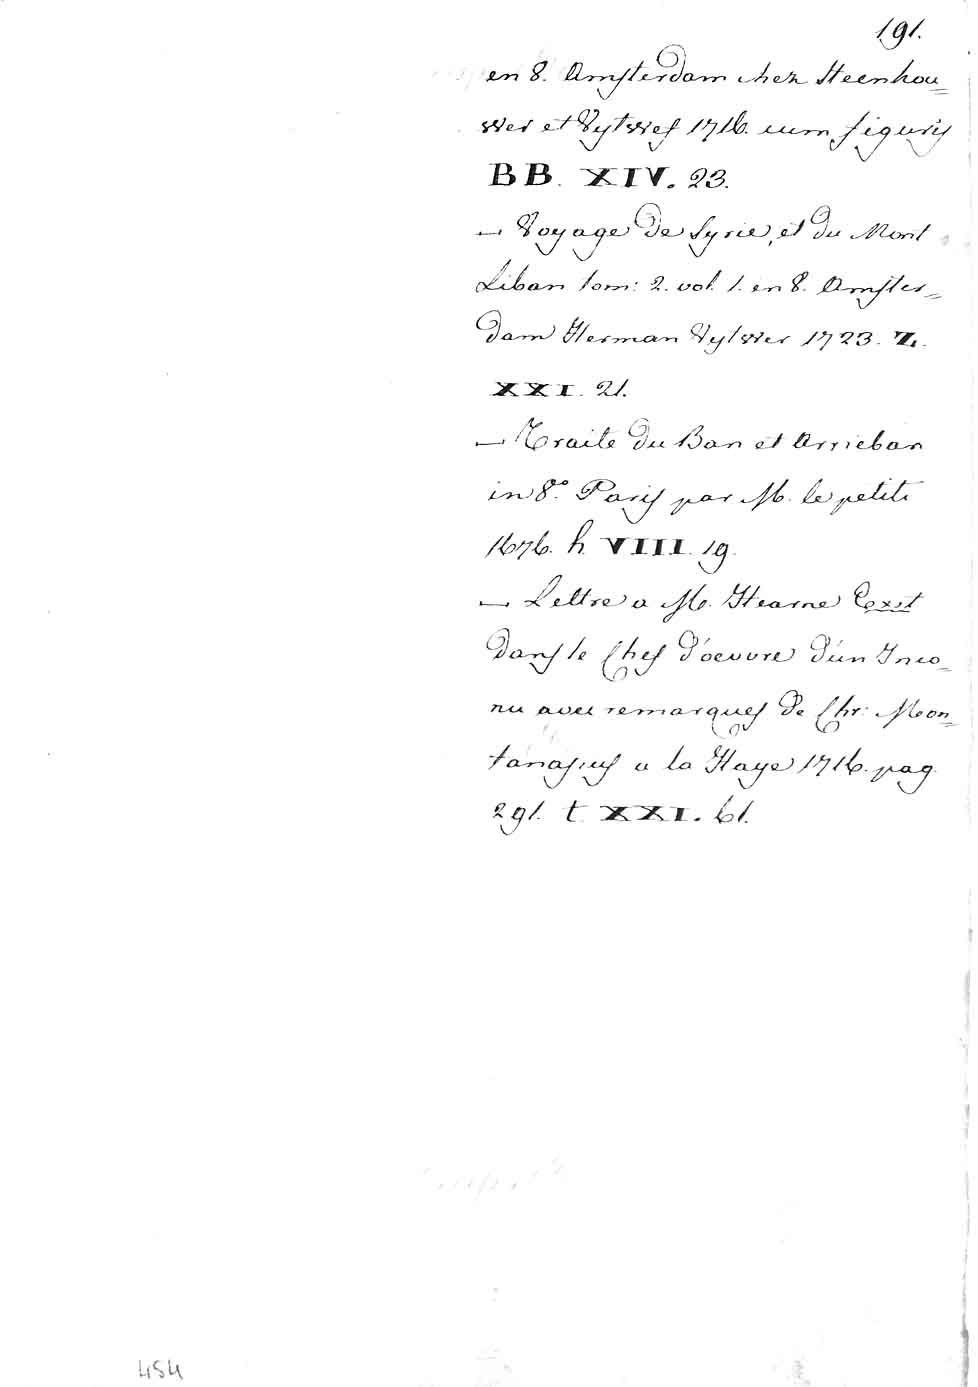 191.
en 8. Amsterdam chez Steenhou=
wer et Vytwef 1716. cum figuris
BB. XIV. 23.
— Voyage de Syrie, et du Mont
Liban tom: 2. vol. 1. en 8. Amster=
dam Herman Vytwer 1723. Z.
XXI. 21.
— Traite du Ban et Arrieban
in 8.º Paris par M. le petit
1676. h. VIII. 19.
— Lettre a M. Hearne Exst
dans le Chef d'oeuvre d'un Inco=
nu avec remarques de Chr: Mon=
tanasius a la Haye 1716. pag.
291. t XXI. 61.
454